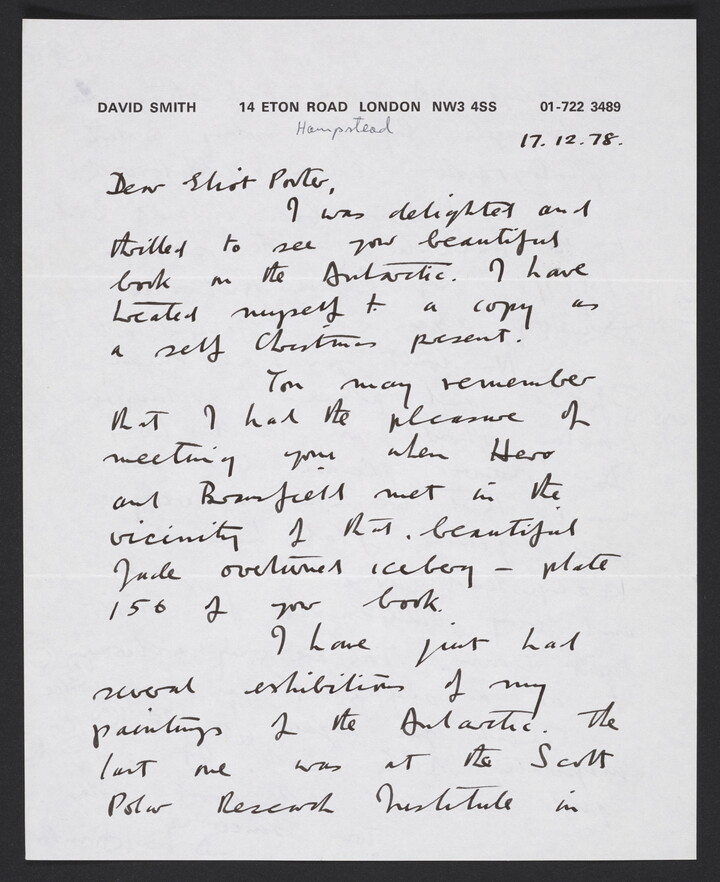 DAVID SMITH 14 ETON ROAD LONDON NW3 4SS 01-722 3489
Hampstead
17.12.78.
Dear Eliot Porter,
I was delighted and
thrilled to see your beautiful
book on the Antarctic. I have
treated myself to a copy as
a self Christmas present.
You may remember
that I had the pleasure of
meeting you when Hero
and Bransfield met in the
vicinity of that beautiful
Jade overturned iceberg – plate
156 of your book.
I have just had
several exhibitions of my
paintings of the Antarctic. The
last one was at the Scott
Polar Research Institute in